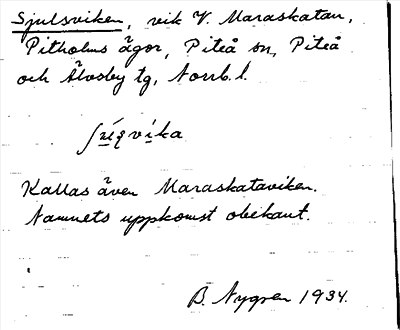 Sjulsviken, vik V. Maraskatan,
Pitholms ägor, Piteå sn, Piteå
och Älvsby tg, Norrb. l.
Kallas även Maraskataviken.
Namnets uppkomst obekant.
B. Nygren 1934.